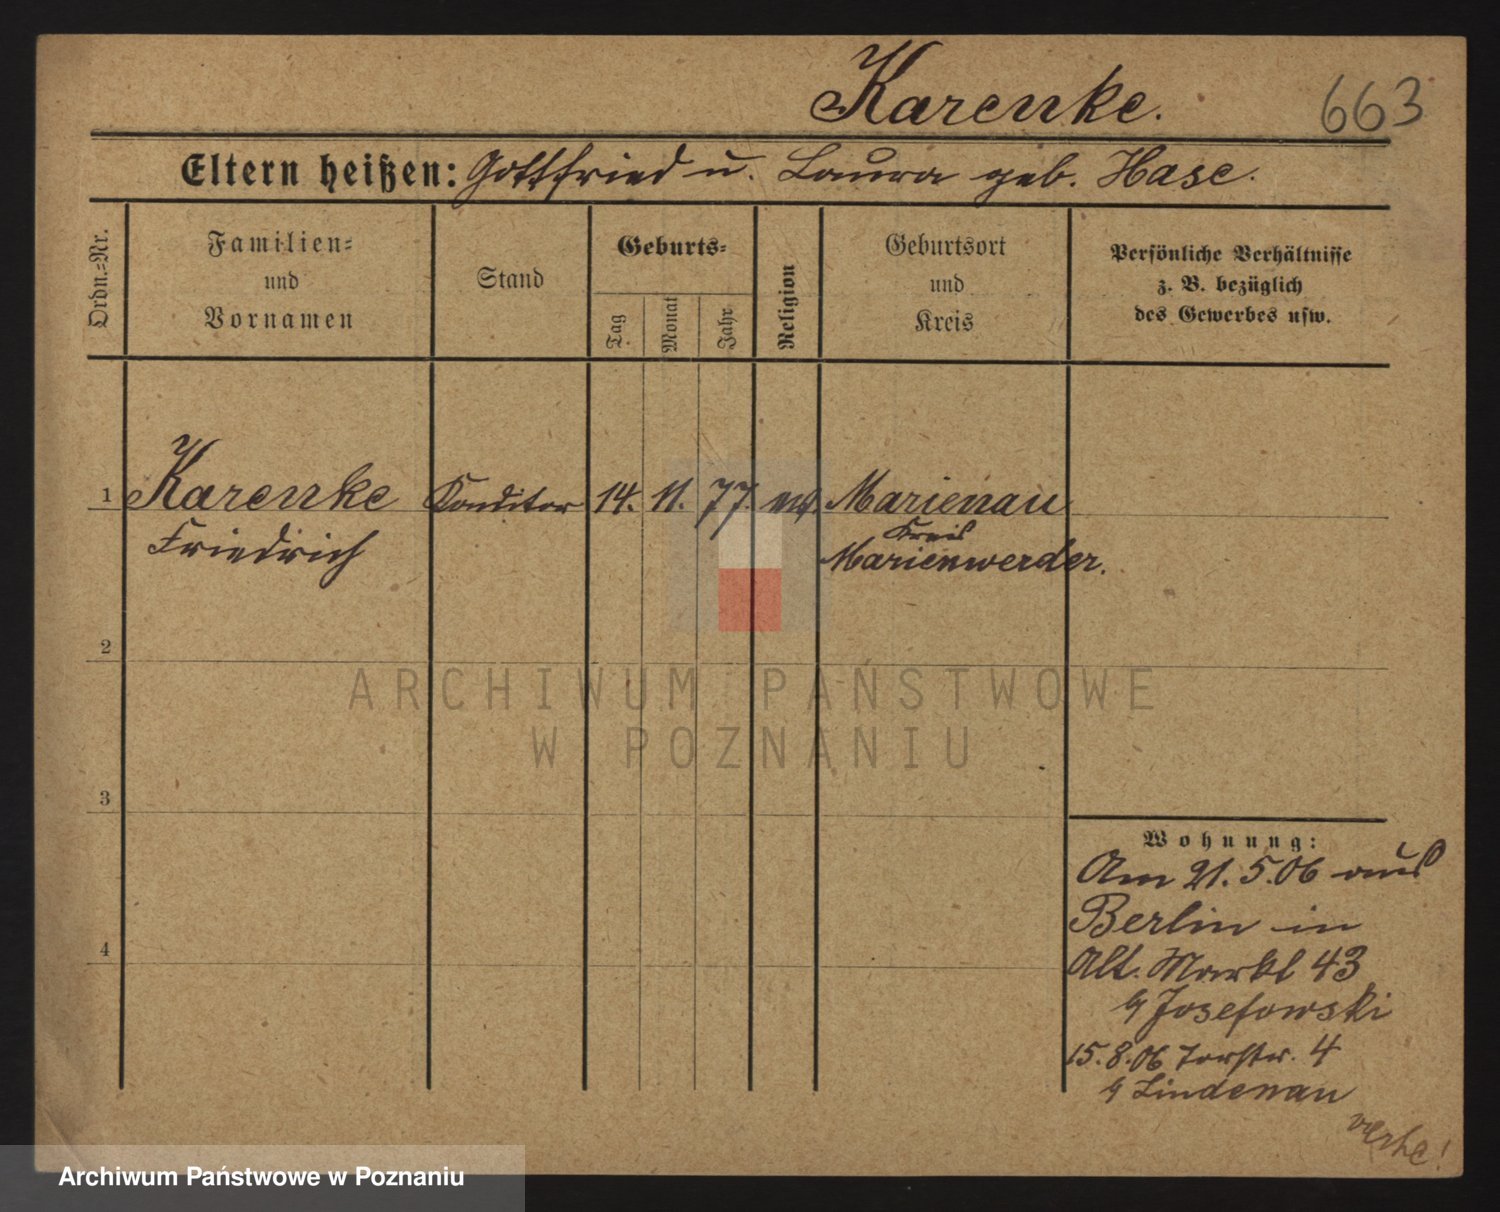 Karenke.
663
Eltern heißen: Gottfried u. Laura geb. Hase.
Ordn.-Nr.
Familien- und Vornamen
Stand
Geburts-
Tag
Monat
Jahr
Religion
Geburtsort und Kreis
Persönliche Verhältnisse
z. B. bezüglich
des Gewerbes usw.
1 Karenke Konditor 14. 11. 77. ev. Marienau
Friedrich
Kreis
Marienwerder.
2
3
4
Wohnung:
Am 21.5.06 aus
Berlin in
Alt. Markt 43
Josefowski
15.8.06 Torstr. 4
Lindenau
ARCHIWUM PAŃSTWOWE
W POZNANIU
Archiwum Państwowe w Poznaniu